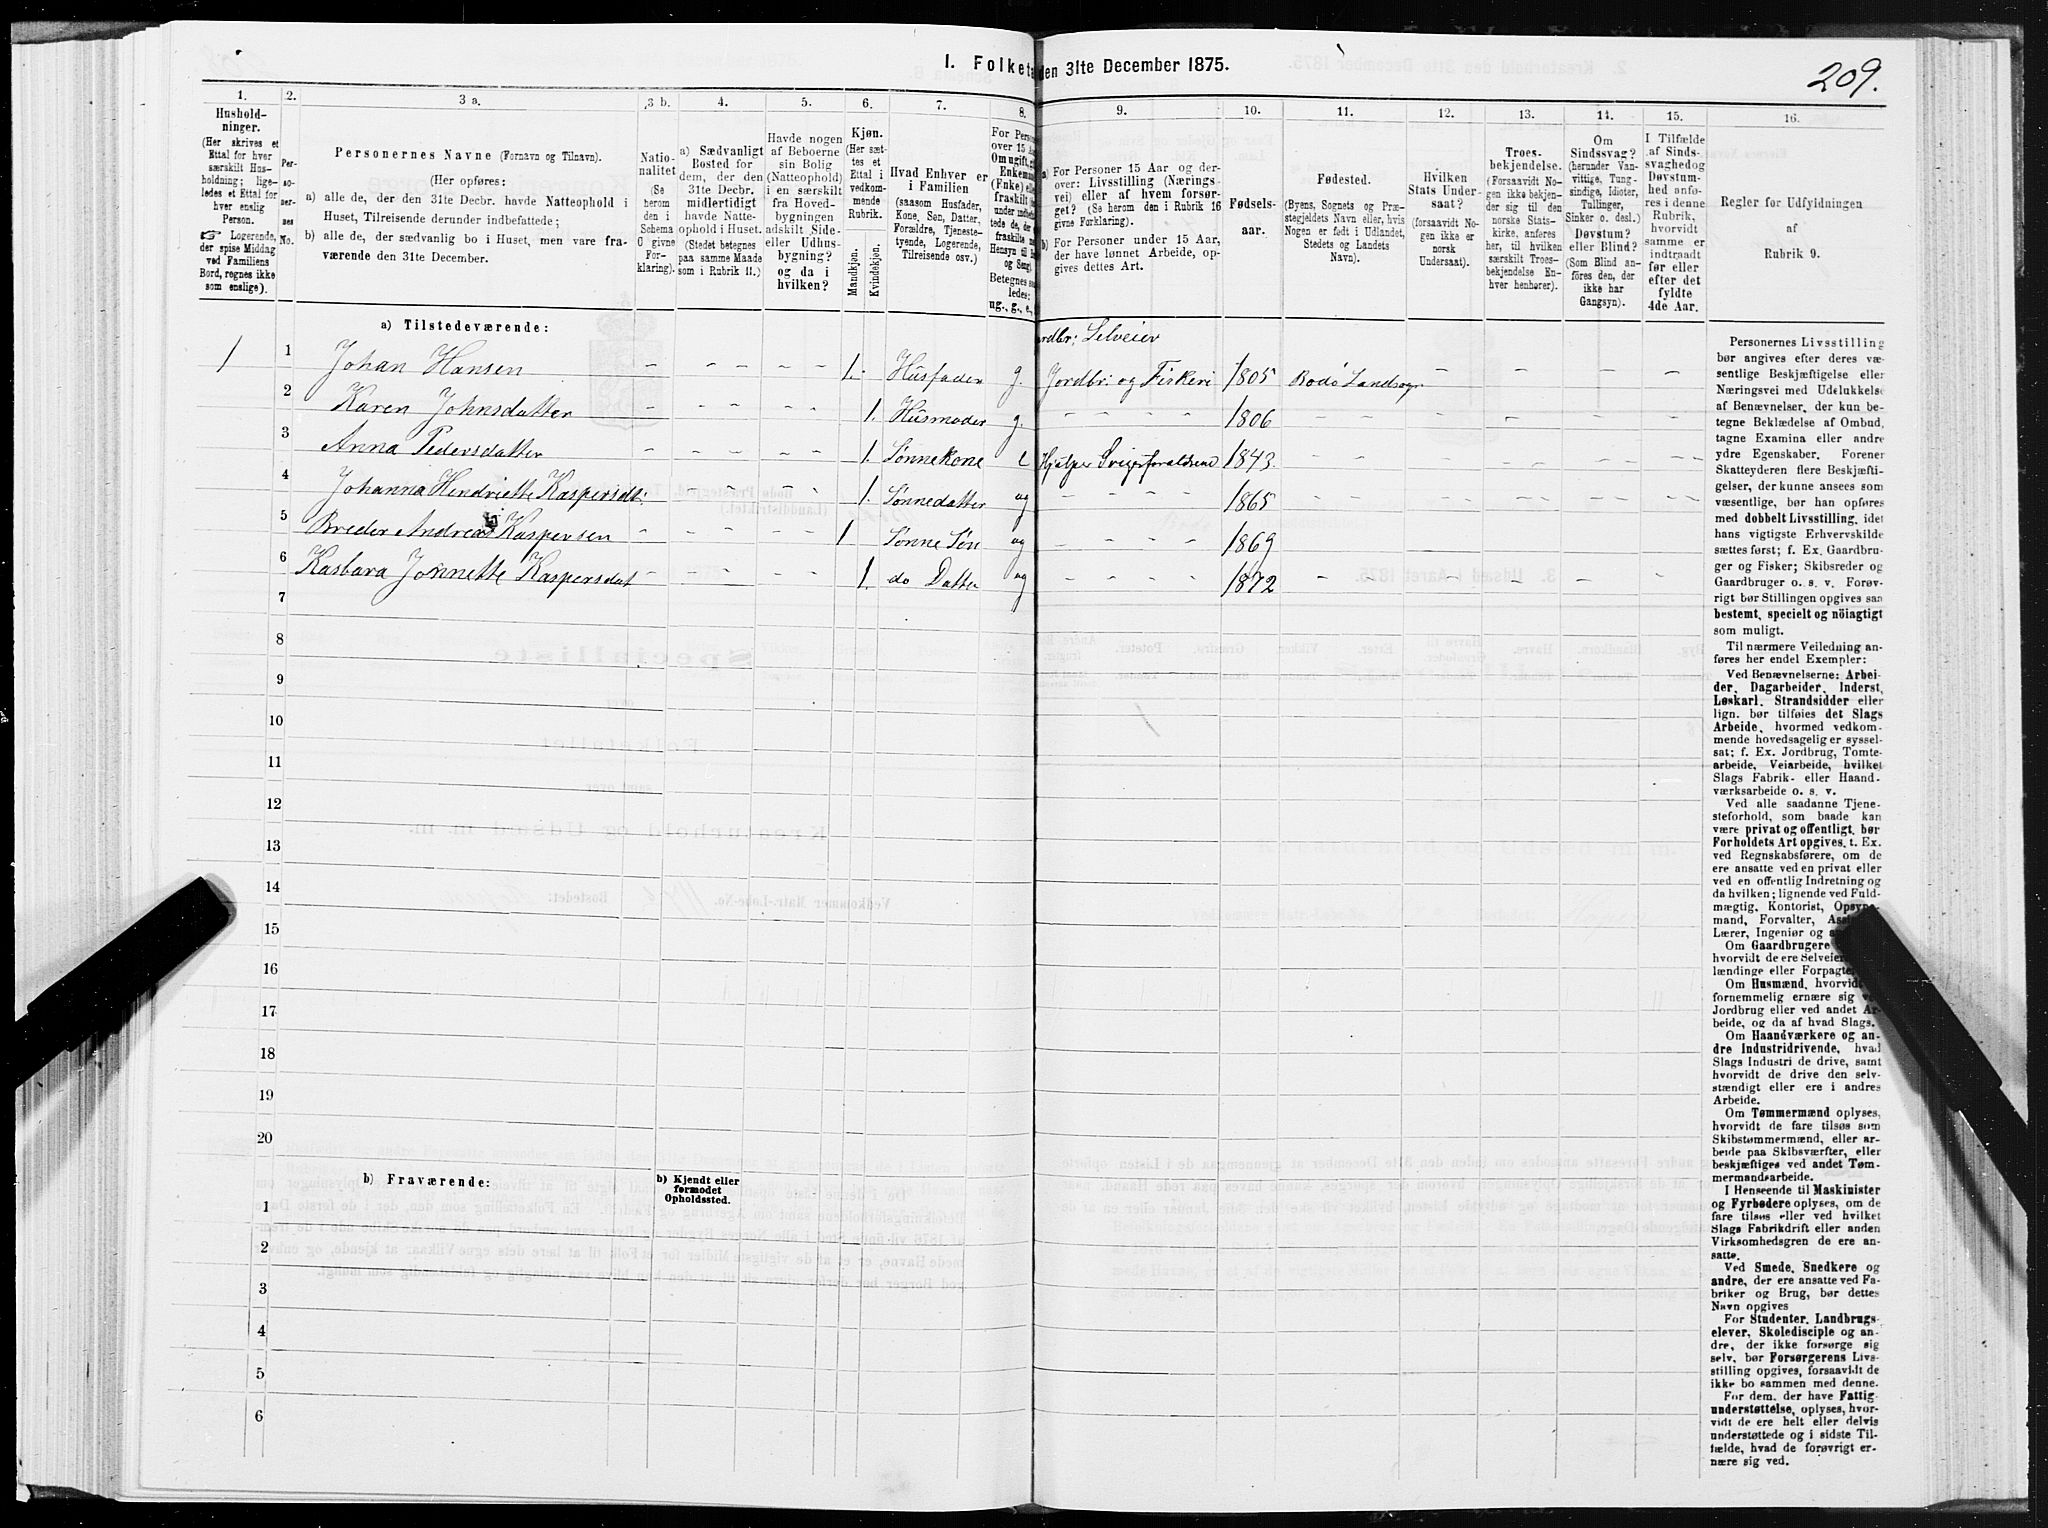 I. Folketæ den 31te December 1875.
209.
1.
Hushold-
ninger.
(Her skrives et
Ettal for hver
særskilt Hus-
holdning; lige-
ledes et Ettal for
hver enslig
Person.
☞ Logerende,
der spise Middag
ved Familiens
Bord, regnes ikke
som enslige).
2.
Per-
so-
ner-
nes
No.
3 a.
Personernes Navne (Fornavn og Tilnavn).
(Her opføres:
a) alle de, der den 31te Decbr. havde Natteophold i
Huset, Tilreisende derunder indbefattede;
b) alle de, der sædvanlig bo i Huset, men vare fra-
værende den 31te December.
3 b.
Natio-
nalitet
(Se
herom
den i
Schema
O givne
For-
klaring).
4.
a) Sædvanligt
Bosted for
dem, der den
31te Decbr.
midlertidigt
havde Natte-
ophold i Huset.
(Stedet betegnes
paa samme Maade
som i Rubrik 11.)
5.
Havde nogen
af Beboerne
sin Bolig
(Natteophold)
i en særskilt
fra Hoved-
bygningen
adskilt Side-
eller Udhus-
bygning?
og da i
hvilken?
6.
Kjøn.
(Her sæt-
tes et
Ettal i
vedkom-
mende
Rubrik.
Mandkjøn.
Kvindekjøn.
7.
Hvad Enhver er
i Familien
(saasom Husfader,
Kone, Søn, Datter,
Forældre, Tjeneste-
tyende, Logerende,
Tilreisende osv.)
8.
For Perso
over 15 A
Om ugift, gi
Enkeman
(Enke) elle
fraskilt
Hensyn til
og Seng).
Betegnes
ledes:
ug., g., e.,
9.
a) For Personer 15 Aar og der-
over: Livsstilling (Nærings
vei) eller af hvem forsør-
get? (Se herom de i Rubrik 16
givne Forklaring).
b) For Personer under 15 Aar,
der have lønnet Arbeide, op-
gives dettes Art.
10.
Fødsels-
aar.
11.
Fødested.
(Byens, Sognets og Præ-
stegjeldets Navn eller, hvis
Nogen er født i Udlandet,
Stedets og Landets
Navn).
12.
Hvilken
Stats Under-
saat?
(forsaavidt No-
gen ikke er
norsk
Undersaat).
13.
Troes-
bekjendelse.
(Forsaavidt No-
gen ikke bekjen-
der sig til den
norske Stats-
kirke, anføres
her, til hvilken
særskilt Troes-
bekjendelse En-
hver henhører).
14.
Om
Sindssvag?
(herunder Van-
vittige, Tung-
sindige, Idioter,
Tullinger,
Sinker o. desl.)
Døvstum?
eller Blind?
(Som Blind an-
føres den, der
ikke har
Gangsyn).
15.
I Tilfælde
af Sinds-
svaghed og
Døvstum-
hed anfø-
res i denne
Rubrik,
hvorvidt
samme er
indtraadt
før eller
efter det
fyldte
4de Aar.
16.
Regler for Udfyldningen
af
Rubrik 9.
a) Tilstedeværende:
ordbr: Selveier
1 1 Johan Hansen – – – – – 1. Husfader g. Jordbr: og Fiskeri 1805 Bodø Landsogn – – – –
2 Karen Johnsdatter – – – – – 1. Husmoder g. – – – – 1806 – – – – – – –
3 Anna Pedersdatter – – – – – 1. Sønnekone e Hjælper Svigerforældrene 1843. – – – – – – –
4 Johanna Hendriette Kaspersdt: – – – – – 1. Sønnedatter ug – – – – 1865 – – – – – – –
5 Breder Andreas Kaspersen – – – – – 1 Sønne Søn ug – – – – 1869 – – – – – – –
6 Kasbara Jonnette Kaspersdat – – – – – 1. do Datte ug – – – – 1872 – – – – – – –
7
8
9
10
11
12
13
14
15
16
17
18
19
20
b) Fraværende:
b) Kjendt eller
formodet
Opholdssted.
1
2
3
4
5
6
Personernes Livsstilling
bør angives efter deres væ-
sentlige Beskjæftigelse eller
Næringsvei med Udelukkelse
af Benævnelser, der kun be-
tegne Beklædelse af Ombud,
tagne Examina eller andre
ydre Egenskaber. Forener
Skatteyderen flere Beskjæfti-
gelser, der kunne ansees som
væsentlige, bør han opføres
med dobbelt Livsstilling, idet
hans vigtigste Erhvervskilde
sættes først; f. Ex. Gaardbru-
ger og Fisker; Skibsreder og
Gaardbruger o. s. v. Forøv-
rigt bør Stillingen opgives saa
bestemt, specielt og nöiagtigt
som muligt.
Til nærmere Veiledning an-
føres her endel Exempler:
Ved Benævnelserne: Arbei-
der, Dagarbeider, Inderst,
Løskarl, Strandsidder eller
lign. bør tilføies det Slags
Arbeide, hvormed vedkom-
mende hovedsagelig er syssel-
sat; f. Ex. Jordbrug, Tomte-
arbeide, Veiarbeide, hvilket
Slags Fabrik- eller Haand-
værksarbeide o. s. v.
Ved alle saadanne Tjene-
steforhold, som baade kan
være privat og offentligt, bør
Forholdets Art opgives, t. Ex.
ved Regnskabsførere, om de
ere ansatte ved en privat eller
ved en offentlig Indretning og
da hvilken; lignende ved Fuld-
mægtig, Kontorist, Opsyns-
mand, Forvalter,
Lærer, Ingeniør og
Om Gaardbrugere
hvorvidt de ere Selveie
lændinge eller Forpagte
Om Husmænd, hvorvidt
fornemmelig ernære sig
Jordbrug eller ved andet Ar-
beide, og da af hvad Slags.
Om Haandværkere og an-
dre Industridrivende, hvad
Slags Industri de drive, samt
hvorvidt de drive den selv-
stændigt eller ere i andres
Arbeide.
Om Tømmermænd oplyses,
hvorvidt de fare tilsøs som
Skibstømmermænd, eller ar-
beide paa Skibsværfter, eller
beskjæftiges ved andet Tøm-
mermandsarbeide.
I Henseende til Maskinister
og Fyrbødere oplyses, om de
fare tilsøs eller ved hvilket
Slags Fabrikdrift eller anden
Virksomhedsgren de ere an-
satte.
Ved Smede, Snedkere og
andre, der ere ansatte ved Fa-
briker og Brug, bør dettes
Navn opgives
For Studenter, Landbrugs-
elever, Skoledisciple og an-
dre, der ikke forsørge sig
selv, bør Forsørgerens Livs-
stilling opgives, forsaavidt de
ikke bo sammen med denne.
For dem, der have Fattig-
understøttelse, oplyses, hvor-
vidt de ere helt eller delvis
understøttede og i sidste Til-
fælde, hvad de forøvrigt er-
nære sig ved.